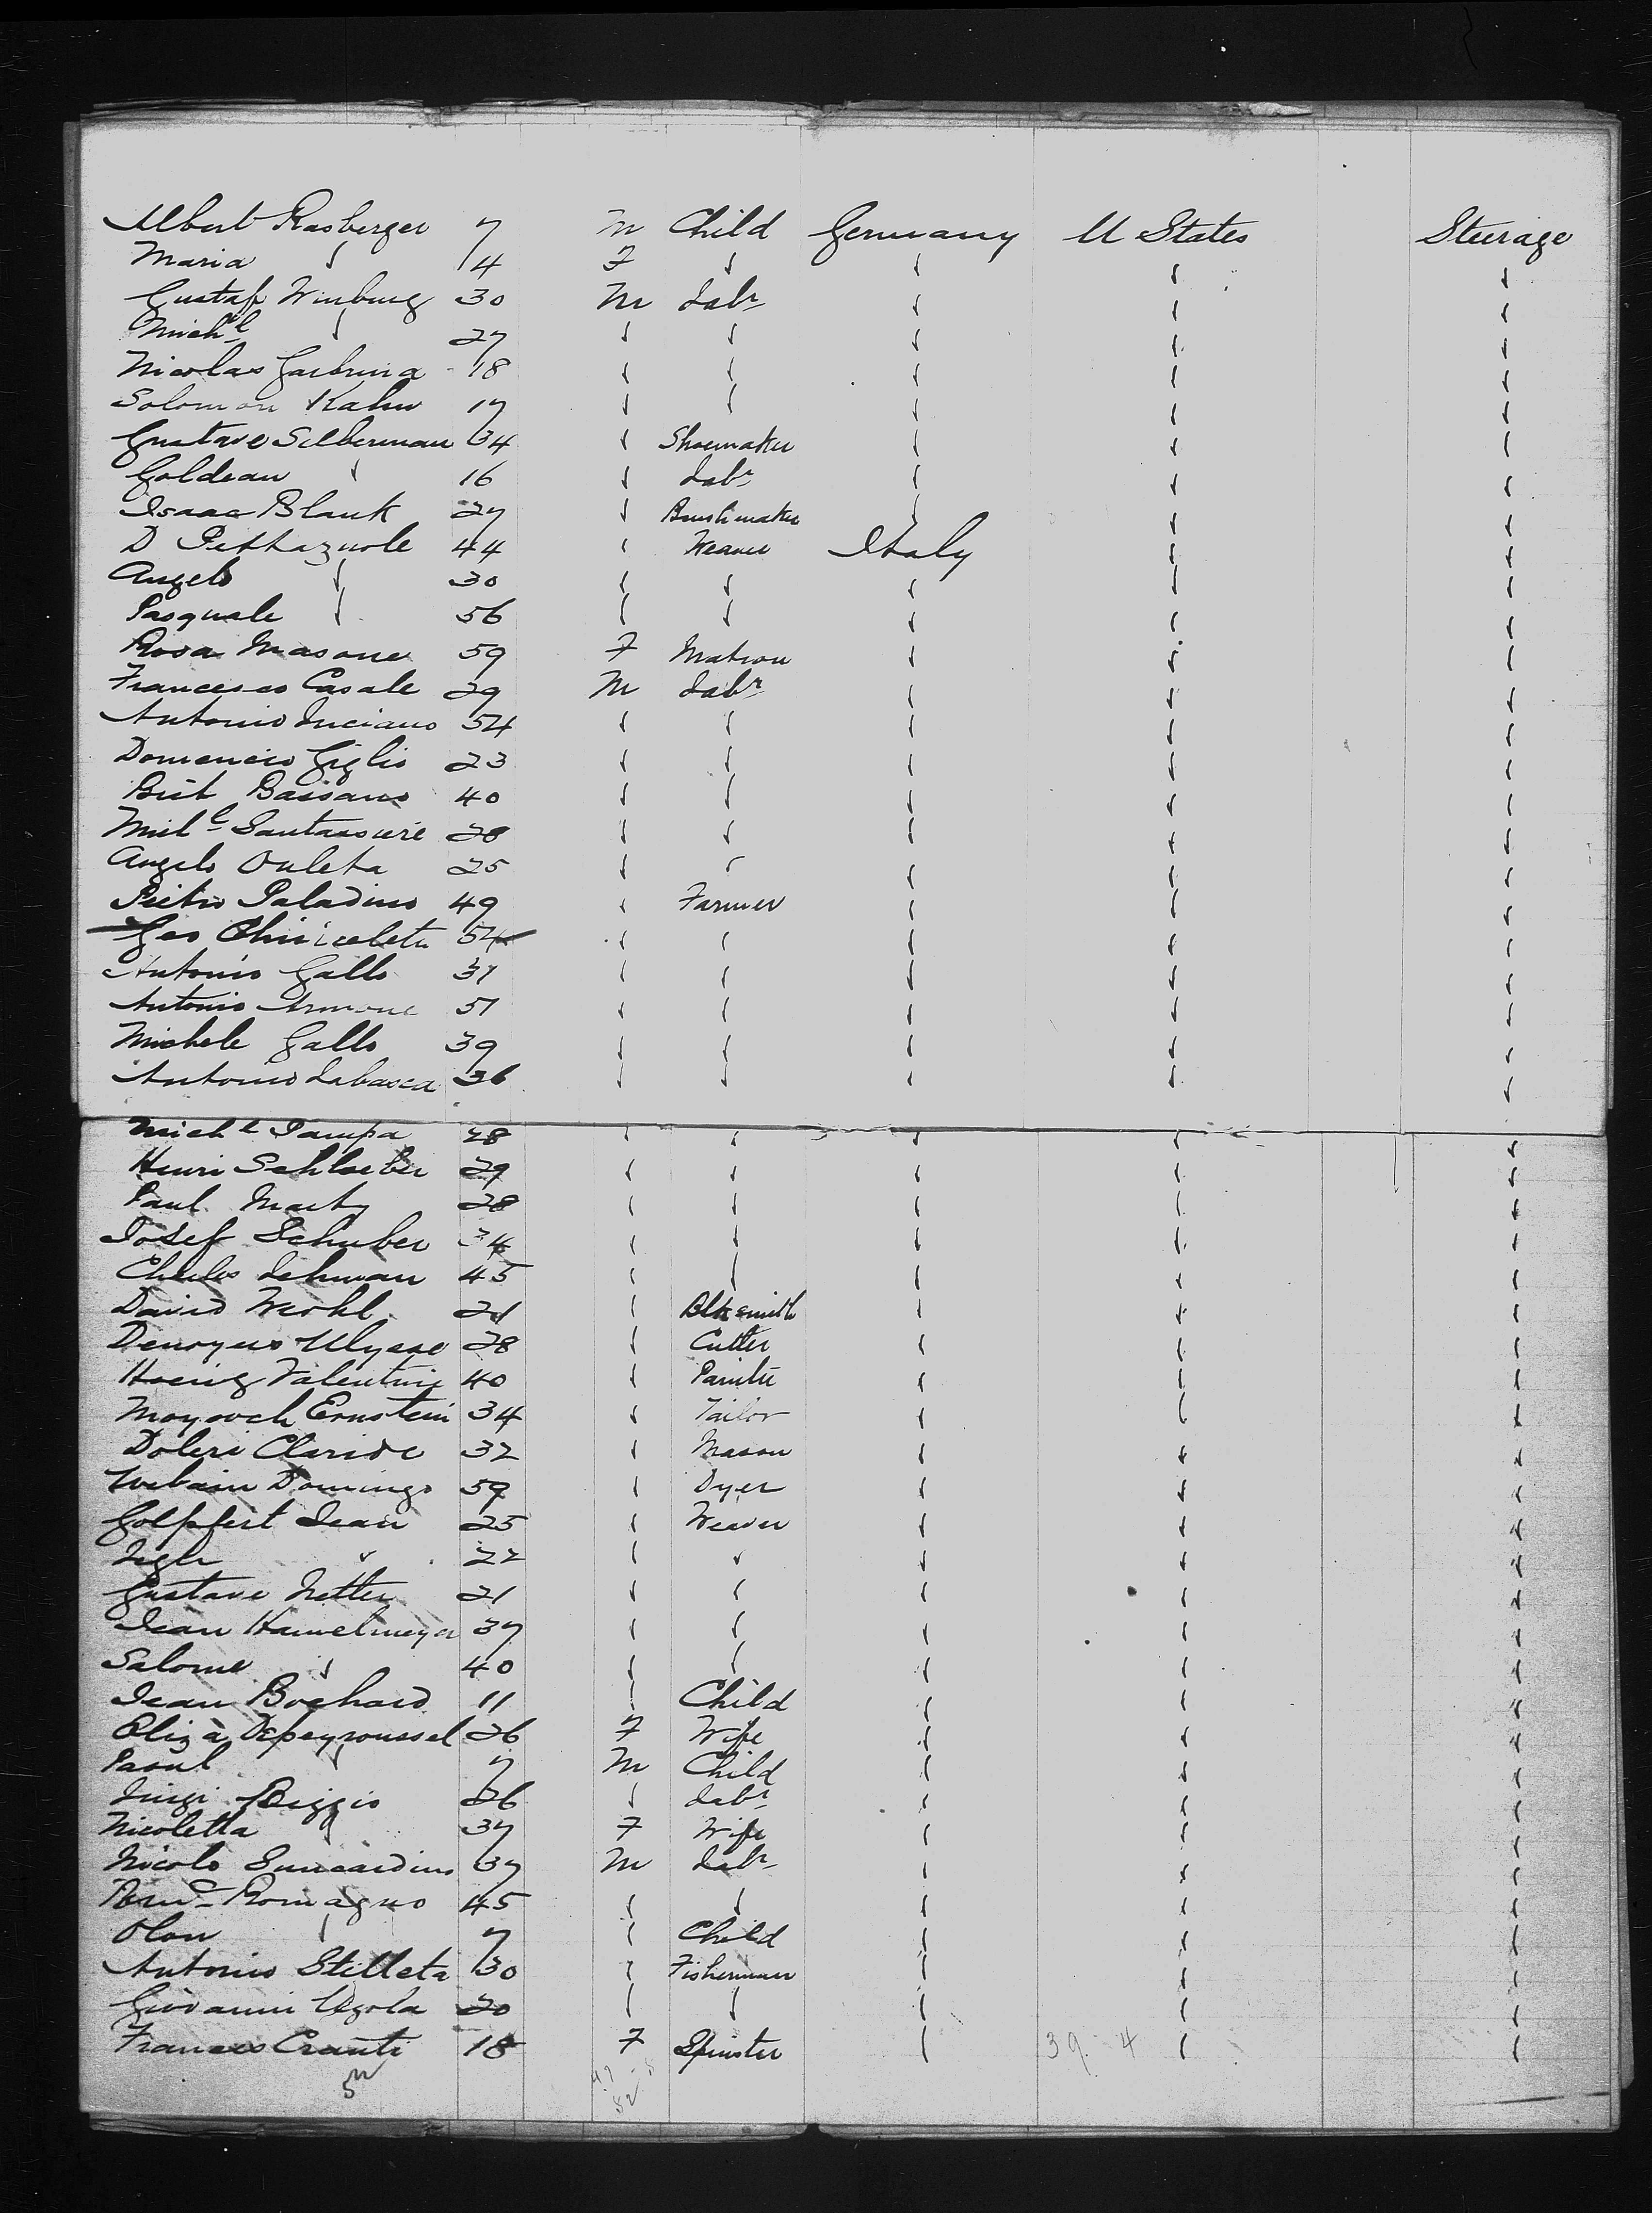 Albert Rasberger 7 M Child Germany U States Steerage
Maria √ 4 F √ √ √ √
Gustaf Winburg 30 M Labr √ √ √
Michl √ 27 √ √ √ √ √
Nicolas 18 √ √ √ √ √
Solomon Kahn 17 √ √ √ √ √
Gustave Silberman 34 √ Shoemaker √ √ √
Goldean √ 16 √ Labr √ √ √
Isaac Blank 27 √ Brushmaker √ √ √
D 44 √ Weaver Italy √ √
Angelo √ 30 √ √ √ √ √
Pasquale √ 56 √ √ √ √ √
Rosa Masone 59 F Matron √ √ √
Francesco Casale 29 M Labr √ √ √
Antonio Luciano 54 √ √ √ √ √
Domencio Giglio 23 √ √ √ √ √
Bassano 40 √ √ √ √ √
28 √ √ √ √ √
Angelo Ouleta 25 √ √ √ √ √
Pietro Paladino 49 √ Farmer √ √ √
Geo 54 √ √ √ √ √
Antonio Gallo 37 √ √ √ √ √
Antonio 51 √ √ √ √ √
Michele Gallo 39 √ √ √ √ √
Antonio Labasca 36 √ √ √ √ √
Michl 28 √ √ √ √ √
Henri Schloeber 29 √ √ √ √ √
Paul Marty 28 √ √ √ √ √
Josef Schuber 34 √ √ √ √ √
Lehman 45 √ √ √ √ √
David Wohl 21 √ Blksmith √ √ √
Ulysse 28 √ Cutter √ √ √
Valentine 40 √ Painter √ √ √
Ernstein 34 √ Tailor √ √ √
Doleri Claride 32 √ Mason √ √ √
Urbain Domingo 59 √ Dyer √ √ √
Golpfert Jean 25 √ Weaver √ √ √
√ 22 √ √ √ √ √
Gustave Netter 21 √ √ √ √ √
Jean Hamelmeyer 37 √ √ √ √ √
Salome √ 40 √ √ √ √ √
Jean Bochard 11 √ Child √ √ √
Eliza Depeyroussel 26 F Wife √ √ √
√ 7 M Child √ √ √
Luigi Biggio 26 √ Labr √ √ √
Nicoletta √ 37 F Wife √ √ √
Nicolo 37 M Labr √ √ √
Romagno 45 √ √ √ √ √
Olan √ 7 √ Child √ √ √
Antonio Stilleta 30 √ Fisherman √ √ √
Giovanni 20 √ √ √ √ √
Frances 18 F Spinster √ 39 4 √ √